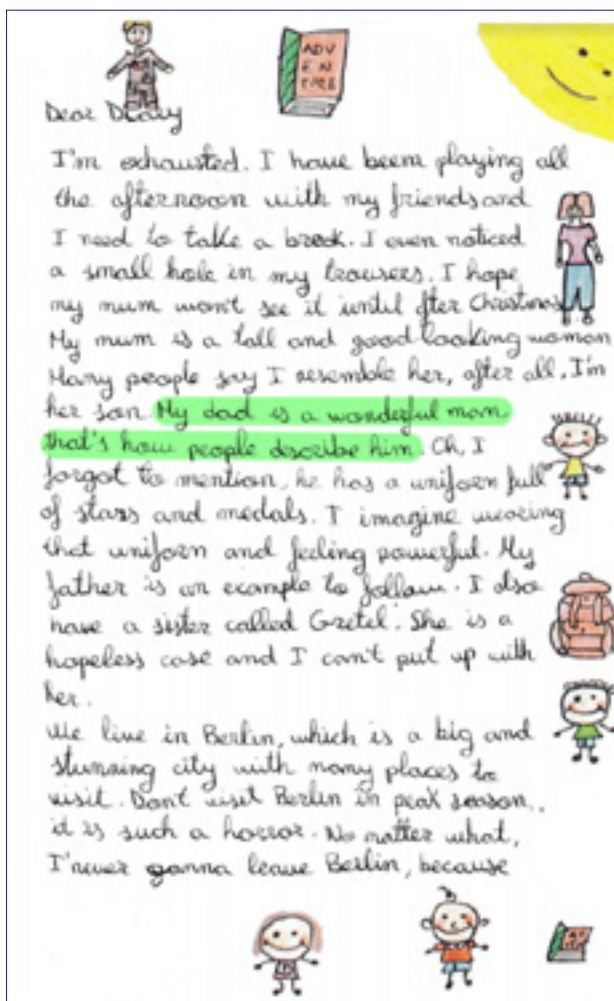 ADV
EN
TURE
Dear Diary
I'm exhausted. I have been playing all
the afternoon with my friends and
I need to take a break. I even noticed
a small hole in my trousers. I hope
my mum won't see it until fter Christmas
My mum is a tall and good looking woman
Many people say I resemble her, after all, I'm
her son. My dad is a wonderful man,
that's how people describe him. Oh, I
forgot to mention, he has a uniforn full
of stars and medals. I imagine wearing
that uniforn and feeling powerful. My
father is an example to follow. I also
have a sister called Gretel. She is a
hopeless case and I can't put up with
her.
We live in Berlin, which is a big and
stunning city with many places to
visit. Don't visit Berlin in peak season,
it is such a horror. No matter what,
I'never gonna leave Berlin, because